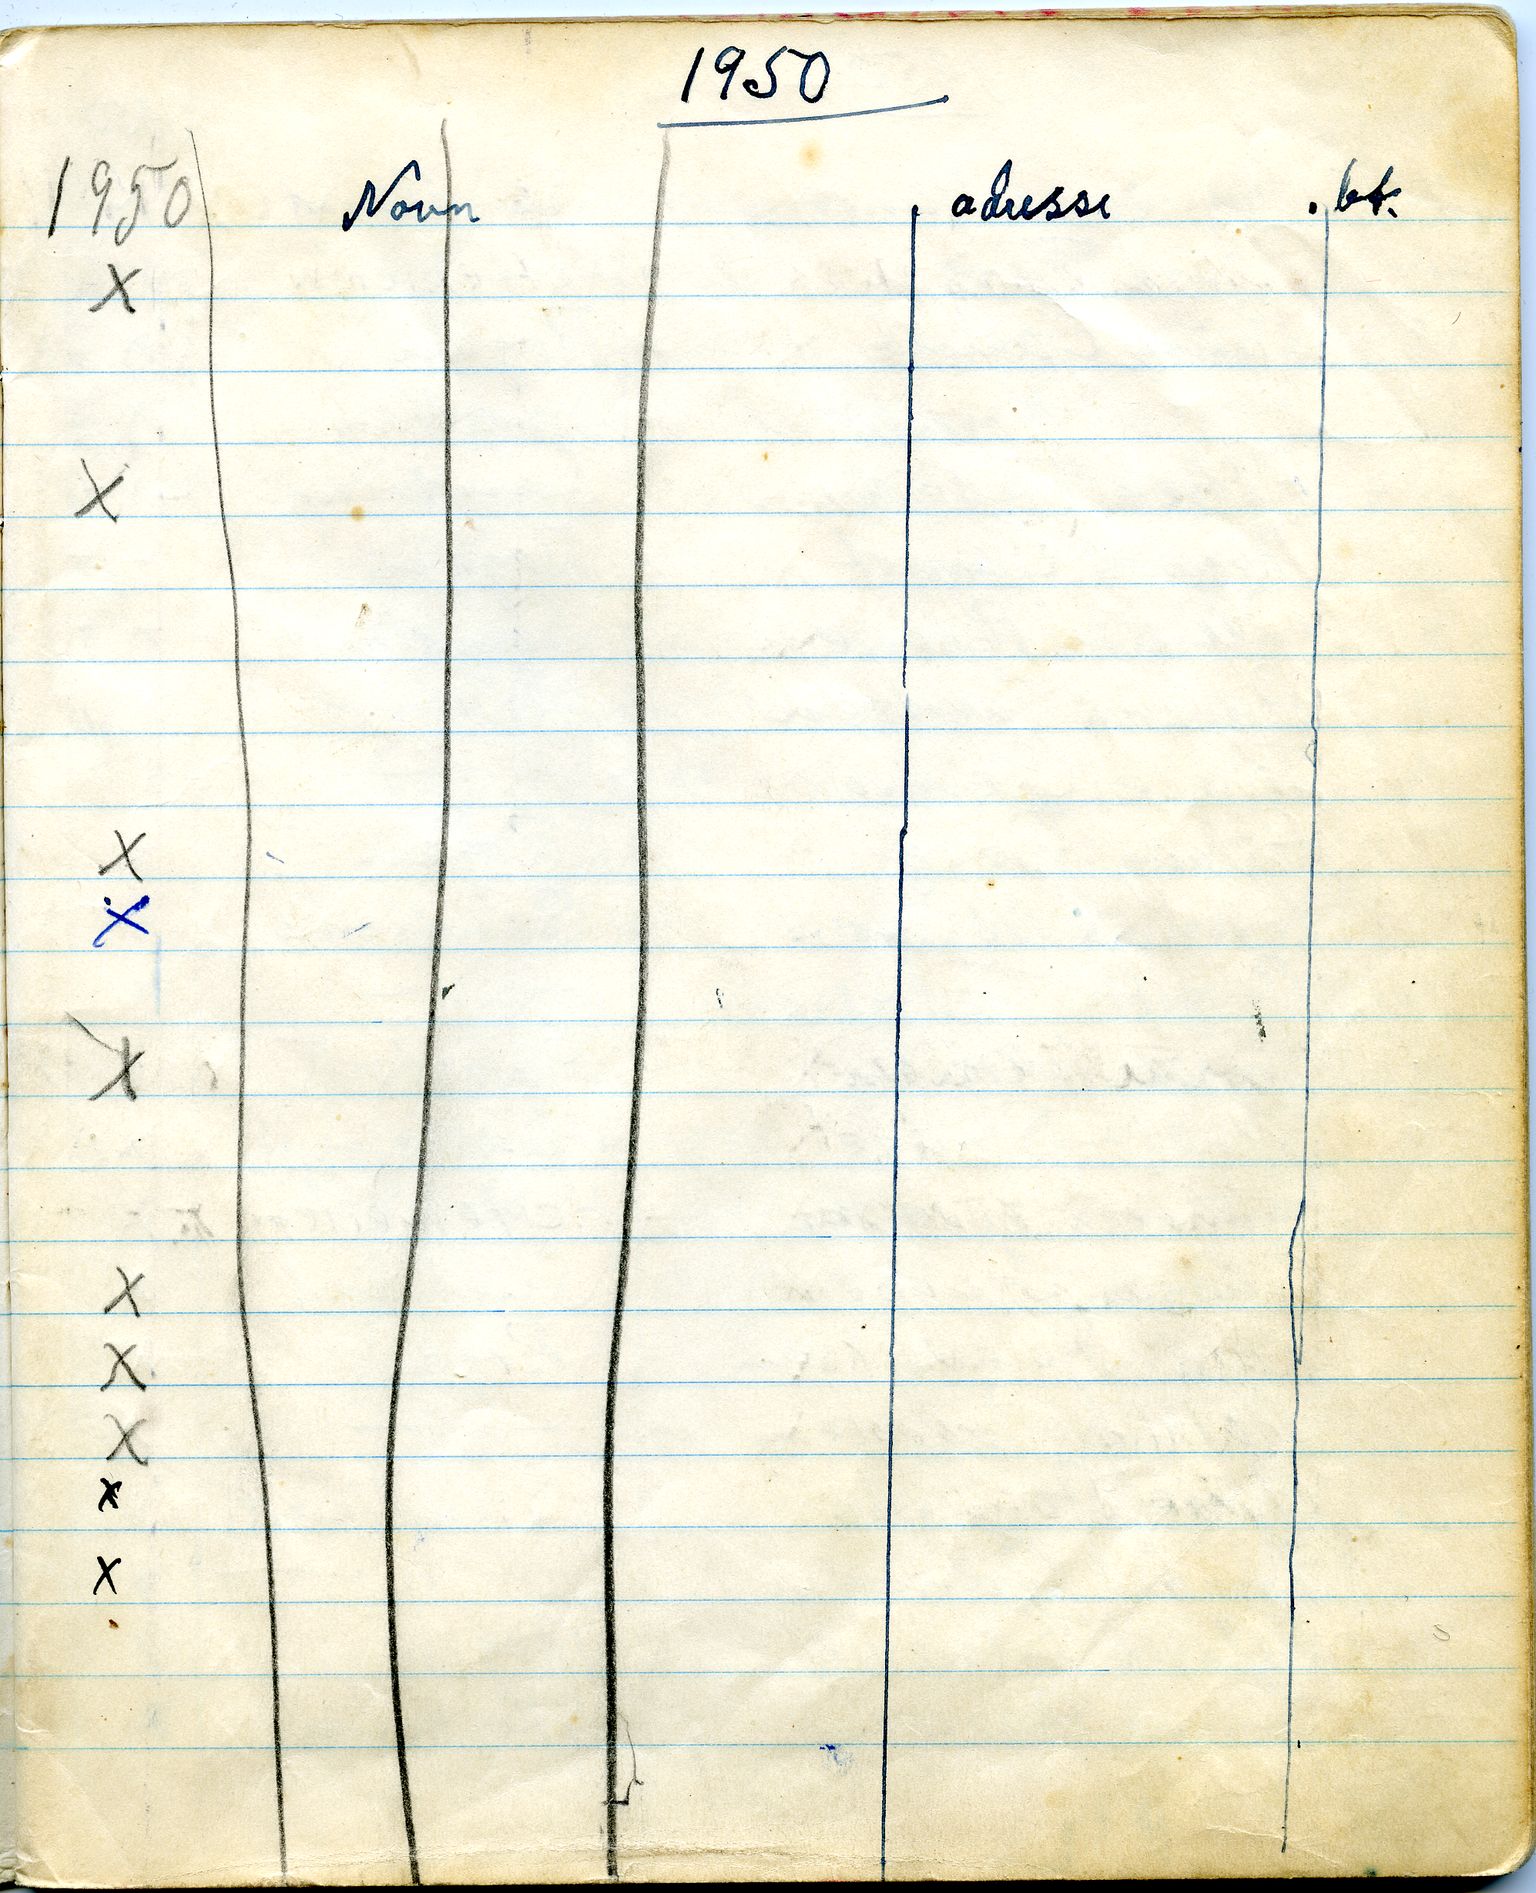 1950
1950 Navn adresse . bt.
X
X
X
X
X
X
X
X
x
x